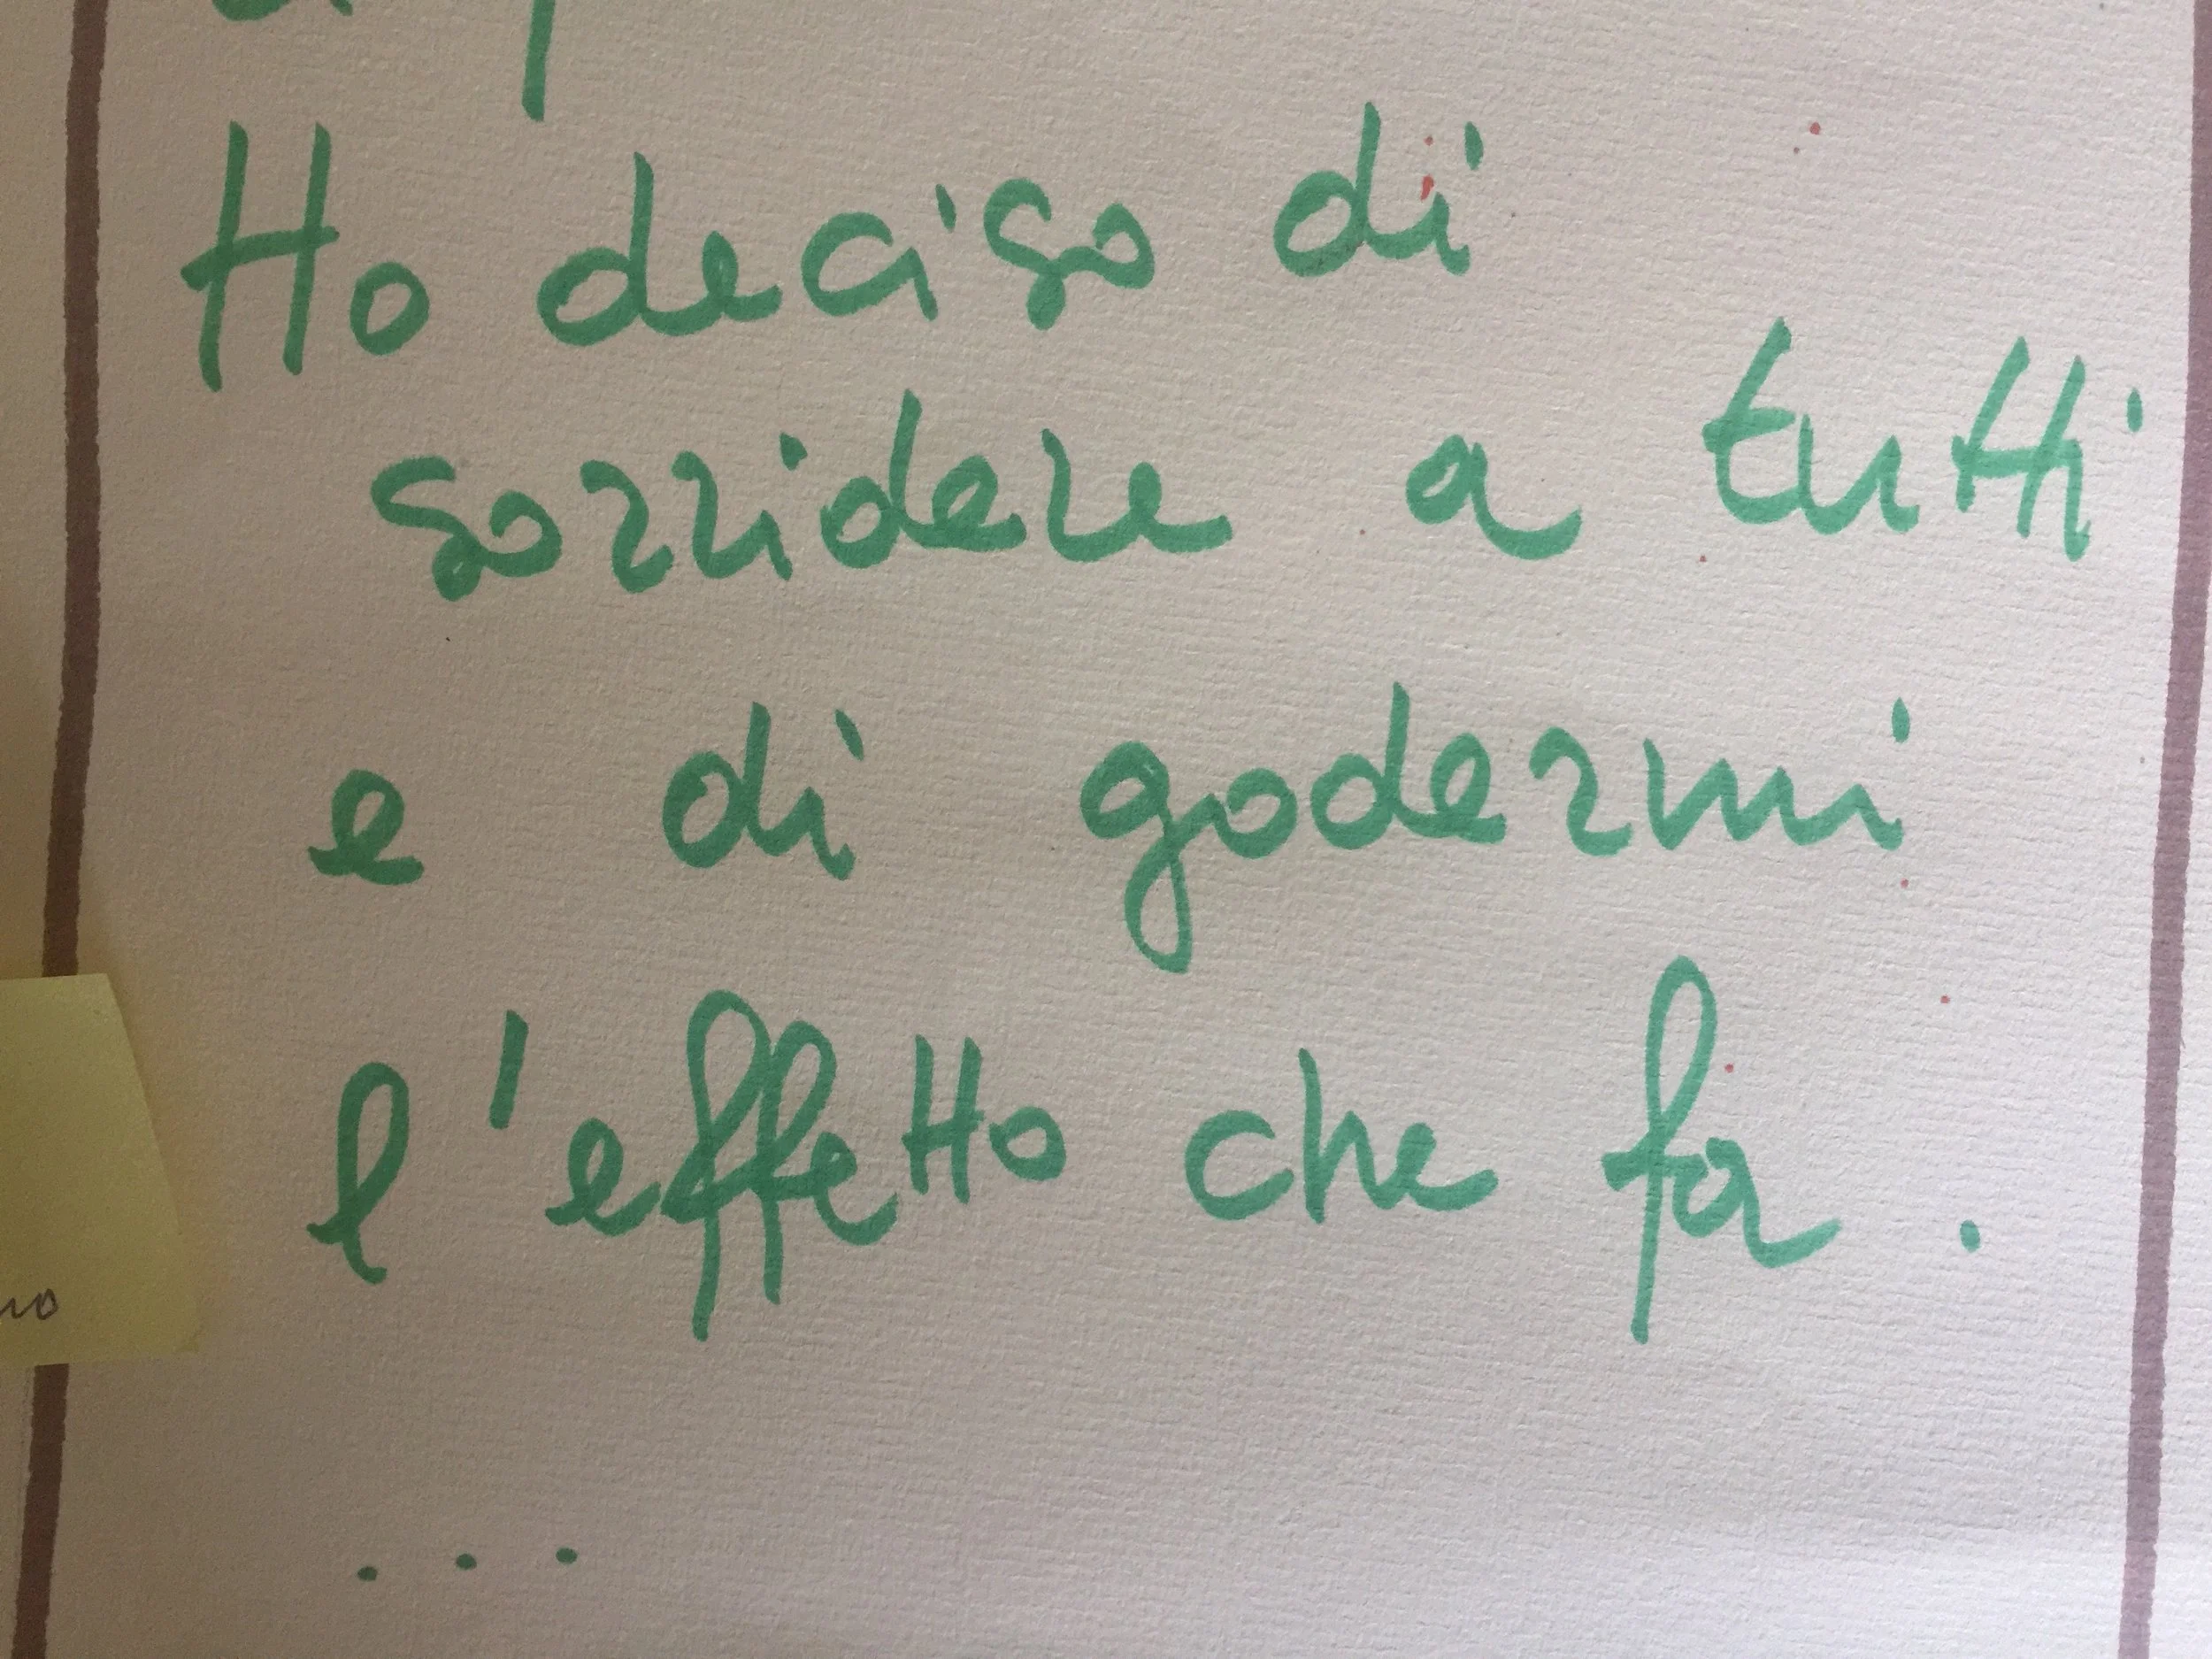 Ho deciso di
sorridere a tutti
e di godermi
l'effetto che fa.
no
...